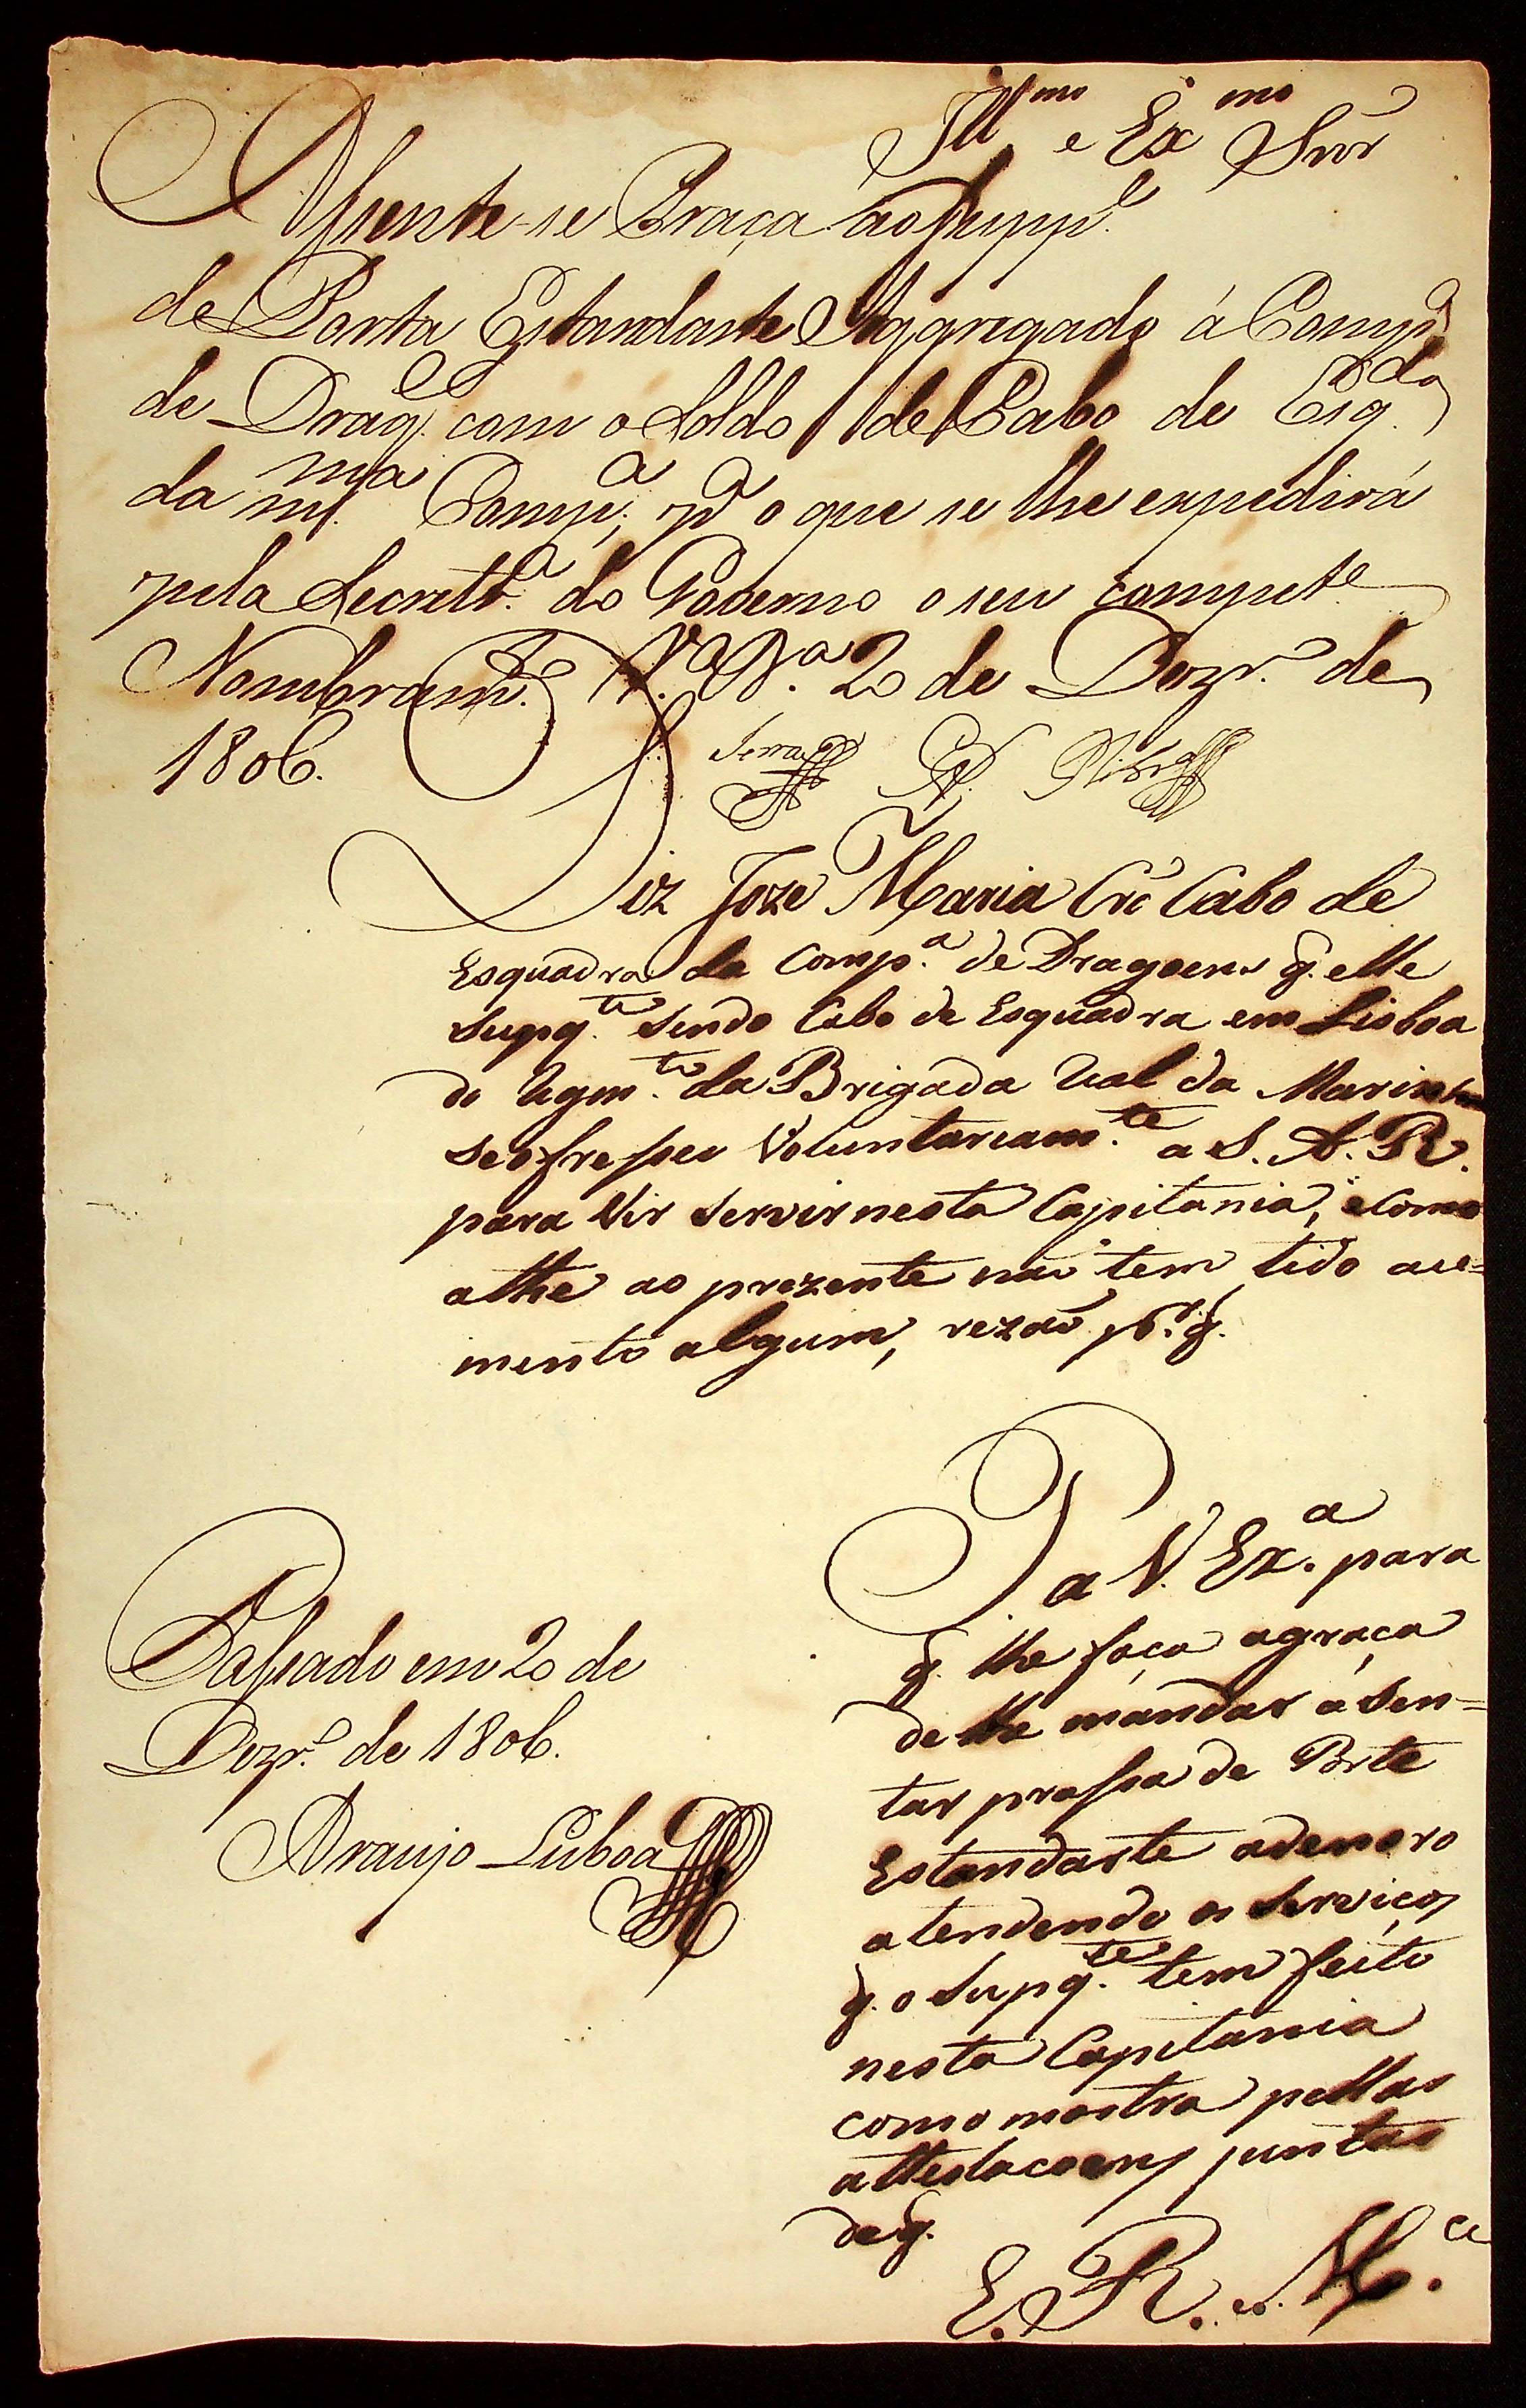 Ill.mo e Ex.mo Snr
Assente-se Praça ao Supp.e
de Porta Estandarte Aggregado á Comp.a
de Drag.es com o Soldo de Cabo de Esq.da
da m.ma Comp.a; p.a o que se lhe expedirá
pela Secretr.a do Governo o seu compet.e
Nombram.to V.a B.a 20 de Dezr.o de
1806.
Serra
Diz Joze Maria Cabo de
Esquadra da Comp.a de Dragoens q. elle
Supq.te sendo Cabo de Esquadra em Lisboa
do Regm.to da Brigada Real da Marinha
se ofresseo Voluntariam.te a S. A. R.
para Vir servir nesta Capitania, e como
athe ao prezente não tem tido ace=
mento algum, rezaõ p.r q.
P. a V. Ex.a para
q. lhe faça agraça
de lhe mandar asen=
tar prassa de Porte
Estandarte
atendendo os serviços
q. o Supq.te tem feito
nesta Capitania
como mostra pellas
attestacoens juntas
de q.
E. R. M.ce
Passado em 20 de
Dezr.o de 1806.
Araujo Lisboa